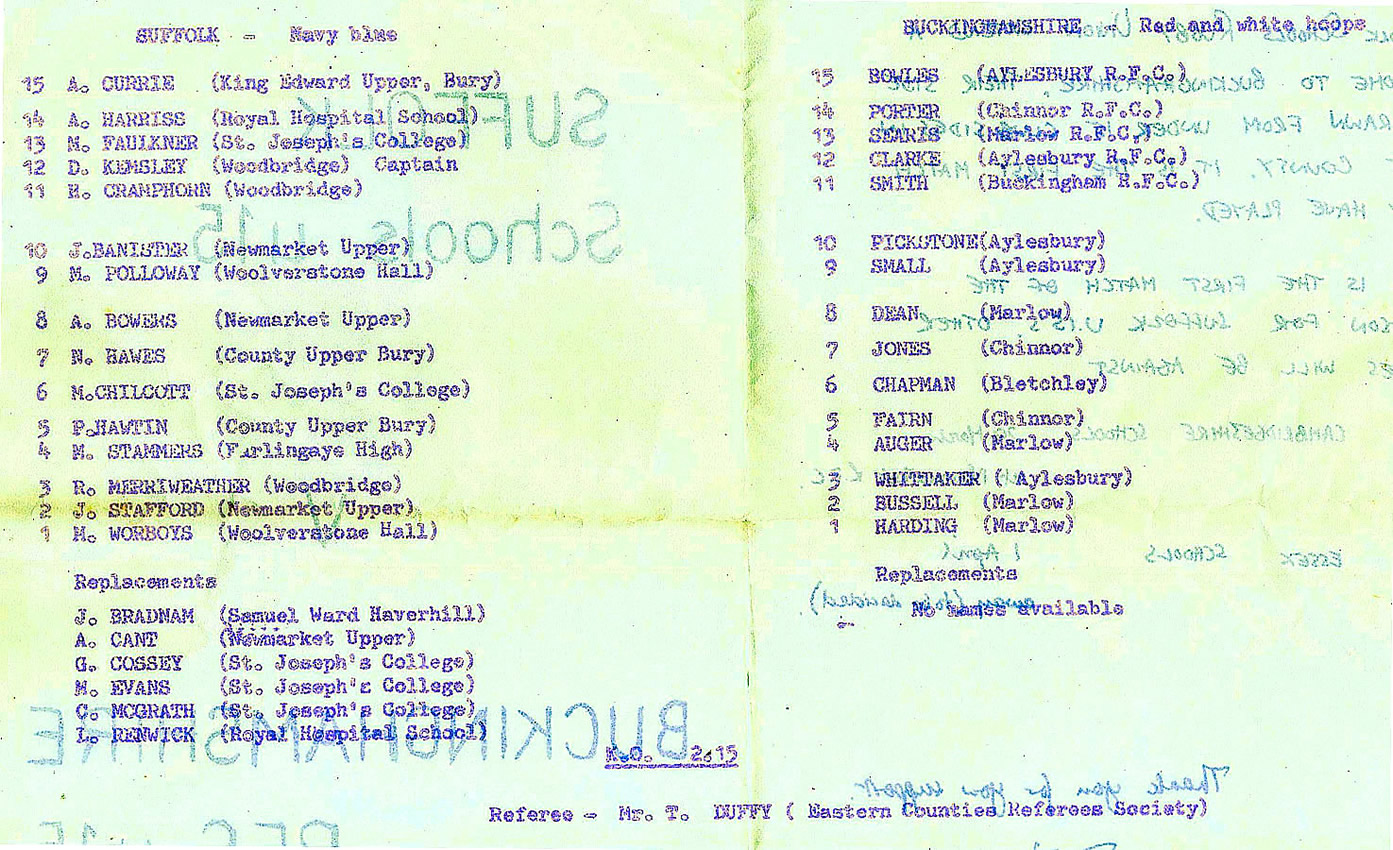 SUFFOLK - Navy blue
15 A. CURRIE (King Edward Upper, Bury)
14 A. HARRISS (Royal Hospital School)
13 M. FAULKNER (St. Joseph's College)
12 D. KEMSLEY (Woodbridge) Captain
11 R. CRAMPHORN (Woodbridge)
10 J.BANISTER (Newmarket Upper)
9 M. POLLOWAY (Woolverstone Hall)
8 A. BOWERS (Newmarket Upper)
7 N. HAWES (County Upper Bury)
6 M.CHILCOTT (St. Joseph's College)
5 P.HAWTIN (County Upper Bury)
4 M. STAMMERS (Farlingaye High)
3 R. MERRIWEATHER (Woodbridge)
2 J. STAFFORD (Newmarket Upper)
1 M. WORBOYS (Woolverstone Hall)
Replacements
J. BRADNAM (Samuel Ward Haverhill)
A. CANT (Newmarket Upper)
G. COSSEY (St. Joseph's College)
M. EVANS (St. Joseph's College)
C. MCGRATH (St. Joseph's College)
L. RENWICK (Royal Hospital School)
BUCKINGHAMSHIRE - Red and white hoops
15 BOWLES (AYLESBURY R.F.C.)
14 PORTER (Chinnor R.F.C.)
13 SEARIS (Marlow R.F.C.)
12 CLARKE (Aylesbury R.F.C.)
11 SMITH (Buckingham R.F.C.)
10 PICKSTONE(Aylesbury)
9 SMALL (Aylesbury)
8 DEAN (Marlow)
7 JONES (Chinnor)
6 CHAPMAN (Bletchley)
5 FAIRN (Chinnor)
4 AUGER (Marlow)
3 WHITTAKER ( Aylesbury)
2 BUSSELL (Marlow)
1 HARDING (Marlow)
Replacements
No names available
K.O. 2.15
Referee - Mr. T. DUFFY ( Eastern Counties Referees Society)
SUFFOLK
Schools u15
V
BUCKINGHAMSHIRE
RFC u15
HAVE PLAYED.
IS THE FIRST MATCH OF THE
FOR SUFFOLK U.15'S OTHER
WILL BE AGAINST
CAMBRIDGESHIRE SCHOOLS
ESSEX SCHOOLS 1 April
Thank you for your support.